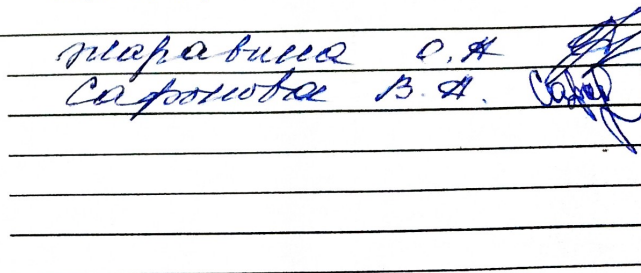 Жаравина О.А
Сафонова В.А.